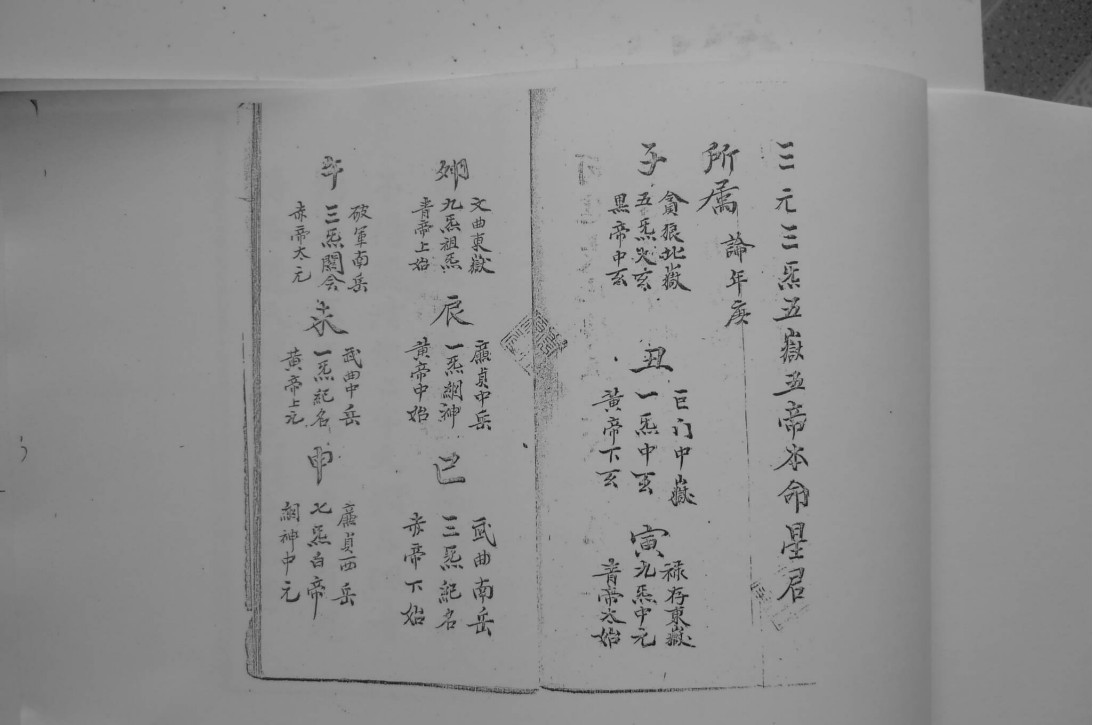 三元三炁五嶽五帝本命星君
所属 論年庚
子
貪狼北嶽
五炁火玄
黑帝中玄
丑
巨门中嶽
一炁中玄
黃帝下玄
寅
禄存東嶽
九炁中元
青帝太始
卯
文曲東嶽
九炁祖炁
青帝上始
辰
廉貞中岳
一炁神
黃帝中始
巳
武曲南岳
三炁紀名
赤帝下始
午
破軍南岳
三炁関令
赤帝太元
未
武曲中岳
一炁紀名
黃帝上元
申
廉貞西岳
七炁白帝
神中元